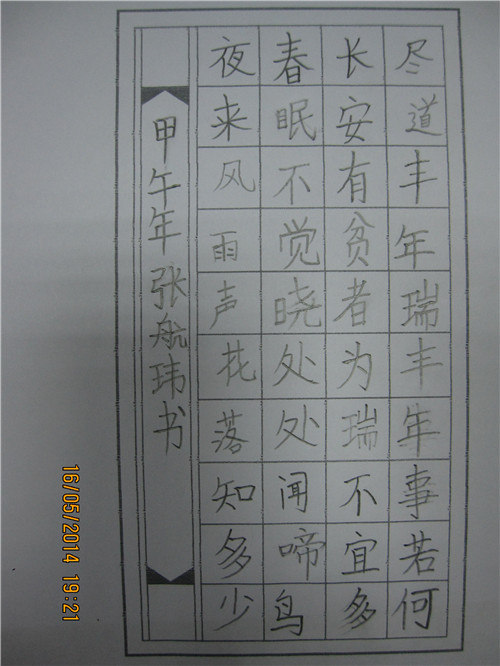 尽道丰年瑞丰年事若何
长安有贫者为瑞不宜多
春眠不觉晓处处闻啼鸟
夜来风雨声花落知多少
甲午年张航玮书
16/05/2014 19:21